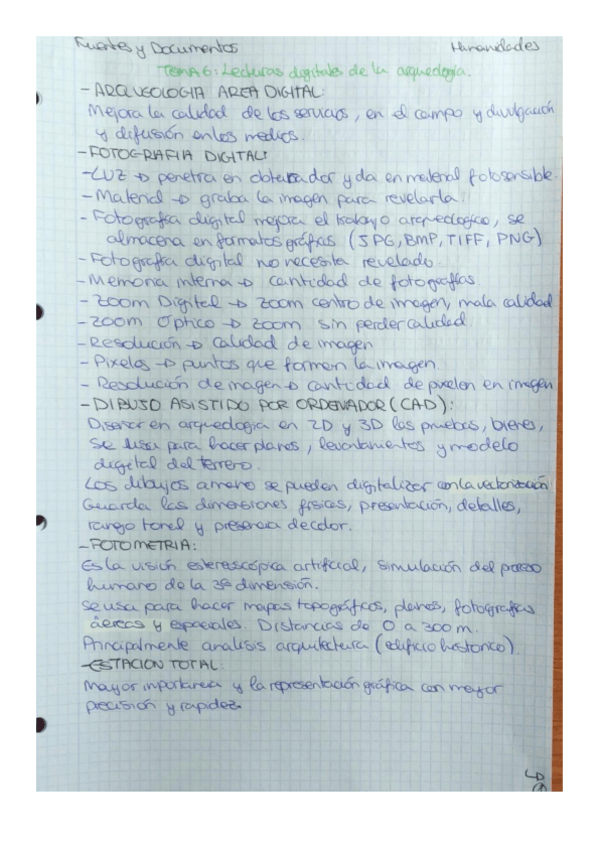 Fuentes y Documentos Humanidades
TEMA 6: Lecturas digitales de la arqueología.
- ARQUEOLOGIA AREA DIGITAL:
Mejora la calidad de los servicios, en el campo y divulgación
y difusión en los medios.
- FOTOGRAFIA DIGITAL:
- LUZ → penetra en obturador y da en material fotosensible.
- Material → graba la imagen para revelarla.
- Fotografía digital mejora el trabajo arqueologico, se
almacena en formatos gráficos (JPG, BMP, TIFF, PNG)
- Fotografía digital no necesita revelado.
- Memoria interna → cantidad de fotografías.
- Zoom Digital → zoom centro de imagen, mala calidad
- Zoom Optico → zoom sin perder calidad.
- Resolución → calidad de imagen
- Pixelos → puntos que forman la imagen.
- Resolución de imagen → cantidad de pixelon en imagen
- DIBUJO ASISTIDO POR ORDENADOR (CAD):
Disenar en arqueologia en 2D y 3D las pruebas, bienes,
se usa para hacer planos, levantamientos y modelo
digital del terreno.
Los dibujos a mano se pueden digitalizar con la vectorización
Guarda las dimensiones fisicas, presentación, detalles,
rango tonal y presencia de color.
- FOTOMETRIA:
Es la visión estereoscópica artificial, simulación del
humano de la 3ª dimensión.
se usa para hacer mapas topográficos, planos, fotografias
áereas y espaciales. Distancias de 0 a 300 m.
Principalmente analisis arquitectura (edificio historico).
- ESTACION TOTAL:
Mayor importancia y la representación gráfica con mayor
precisión y rapidez.